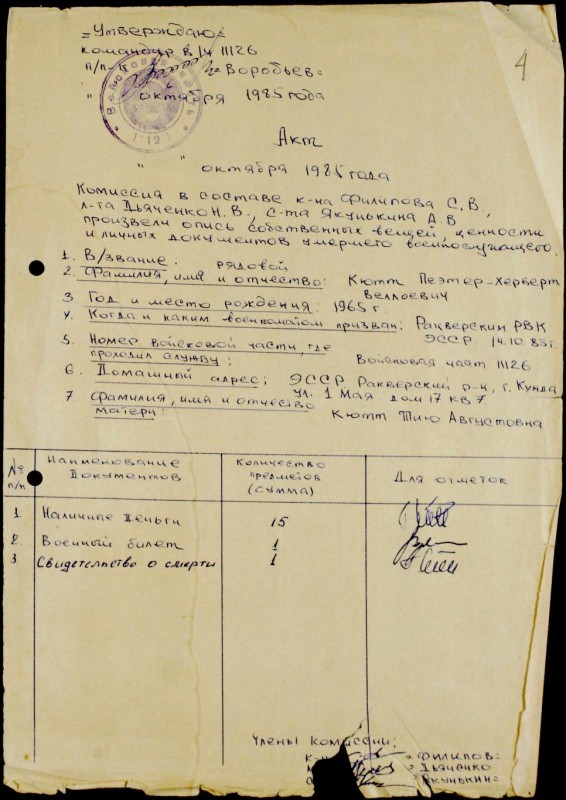 =Утверждаю=
командир в/ч 11126
п/п-к = Воробьев=
" октября 1985 года
4
Акт
" " октября 1985 года
Комиссия в составе к-на Филипова С.В.,
л-та Дьяченко Н.В., с-та Якунькина А.В
произвели опись собственных вещей, ценности
и личных документов умершего военнослужащего.
1. В/звание: рядовой
2. Фамилия, имя и отчество: Кютт Пеэтер-Херберт
Веллоевич
3 Год и место рождения: 1965 г.
4. Когда и каким военкоматом призван: Ракверским РВК
ЭССР 14.10.83г.
5. Номер войсковой части, где
проходил службу: Войсковая част 11126
6. Домашный адрес: ЭССР Ракверский р-н, г. Кунда
ул. 1 Мая дом 17 кв 7
7 Фамилия, имя и отчество
матери: Кютт Тию Августовна
№ п/п Наименование Документов Количество предметов (сумма) Для отметок
1 Наличные Деньги 15
2. Военный билет 1
3 Свидетельство о смерти 1
Члены комиссии:
к-н =Филипов=
=Дьяченко
=Якунькин=